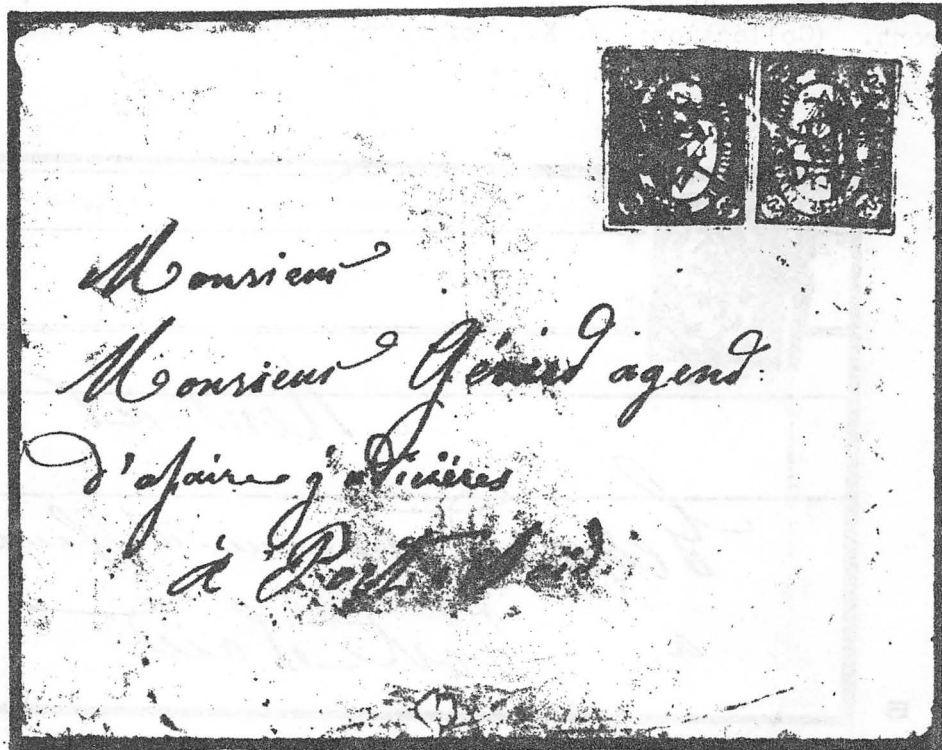 Monsieur
Monsieur Gérard agend
d'afaire judicières
à Port Said